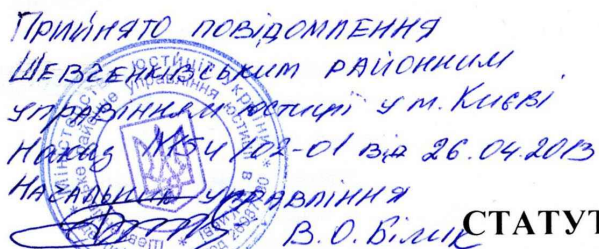 Прийнято повідомлення
Шевченківським районним
управлінням юстиції у м. Києві
Наказ 102-01 від 26.04.2013
Начальник управління
В.О. Білик
СТАТУТ